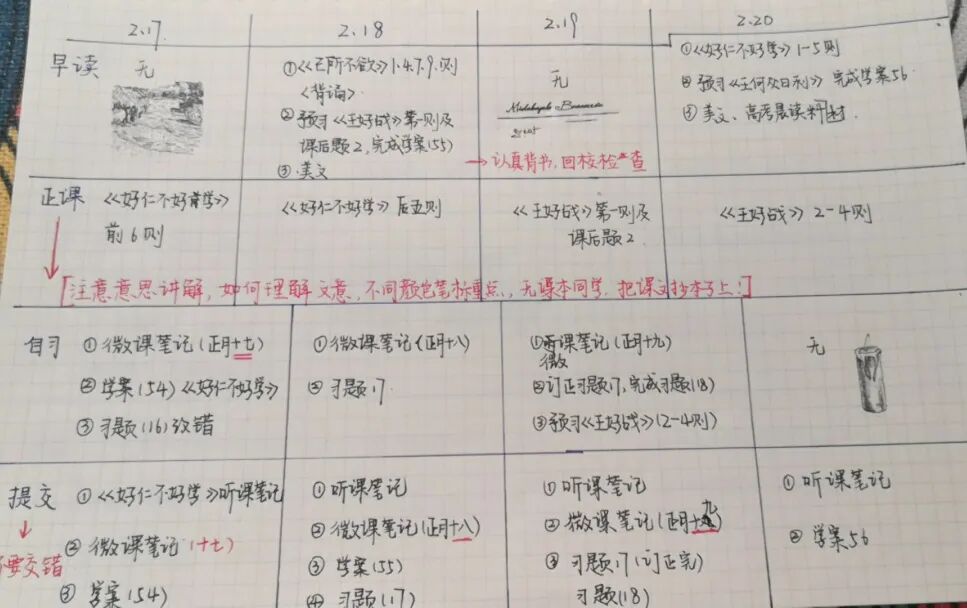 2.17.
2.18
2.19
2.20
早读
无
①《己所不欲》1.4.7.9.则
<背诵>
②预习《王好战》第一则及
课后题2,完成学案(55)
③.美文
无
→认真背书,回校检查
①《好仁不好学》1-5则
②预习《王何必曰利》完成学案56
③美文、高考晨读料材.
正课
《好仁不好学》
前6则
《好仁不好学》后五则
《王好战》第一则及
课后题2.
《王好战》2-4则
[注意意思讲解,如何理解文意,不同颜色笔标重点,无课本同学,把课文抄本子上!]
自习
①微课笔记(正月十七)
②学案(54)《好仁不好学》
③习题(16)改错
①微课笔记(正月十八)
②习题17.
①听课笔记(正月十九)
微
②订正习题17,完成习题(18)
③预习《王好战》(2-4则)
无
提交
↓
不要交错
①《好仁不好学》听课笔记
②微课笔记(十七)
③学案(54)
①听课笔记
②微课笔记(正月十八)
③学案(55)
④习题(17)
①听课笔记
②微课笔记(正月十九)
③习题17(订正完)
习题(18)
①听课笔记
②学案56